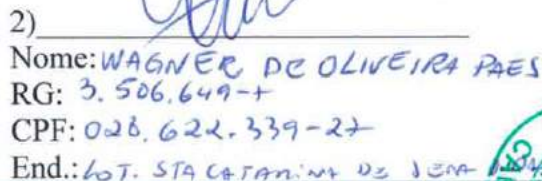 2)
Nome: WAGNER DE OLIVEIRA PAES
RG: 3.506.649-7
CPF: 028.622.339-27
End.: LOT. STA CATARINA DE